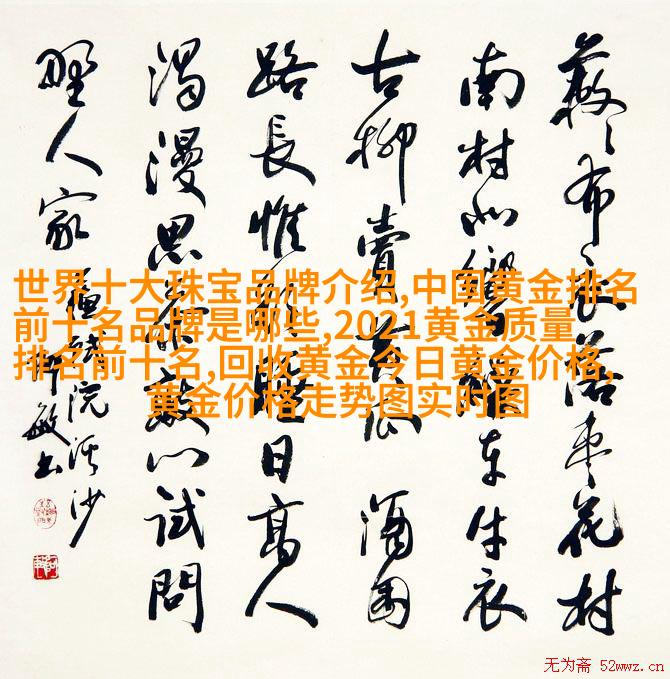 世界十大珠宝品牌介绍,中国黄金排名
前十名品牌是哪些,2021黄金质量
排名前十名,回收黄金今日黄金价格,
黄金价格走势图实时图
落枣花村
南村北響繅車牛衣
古柳賣黄瓜 酒困
路長惟欲睡日高人
渴漫思茶敲门试問
野人家
院溪沙
敏书
无为斋 52wwz.cn